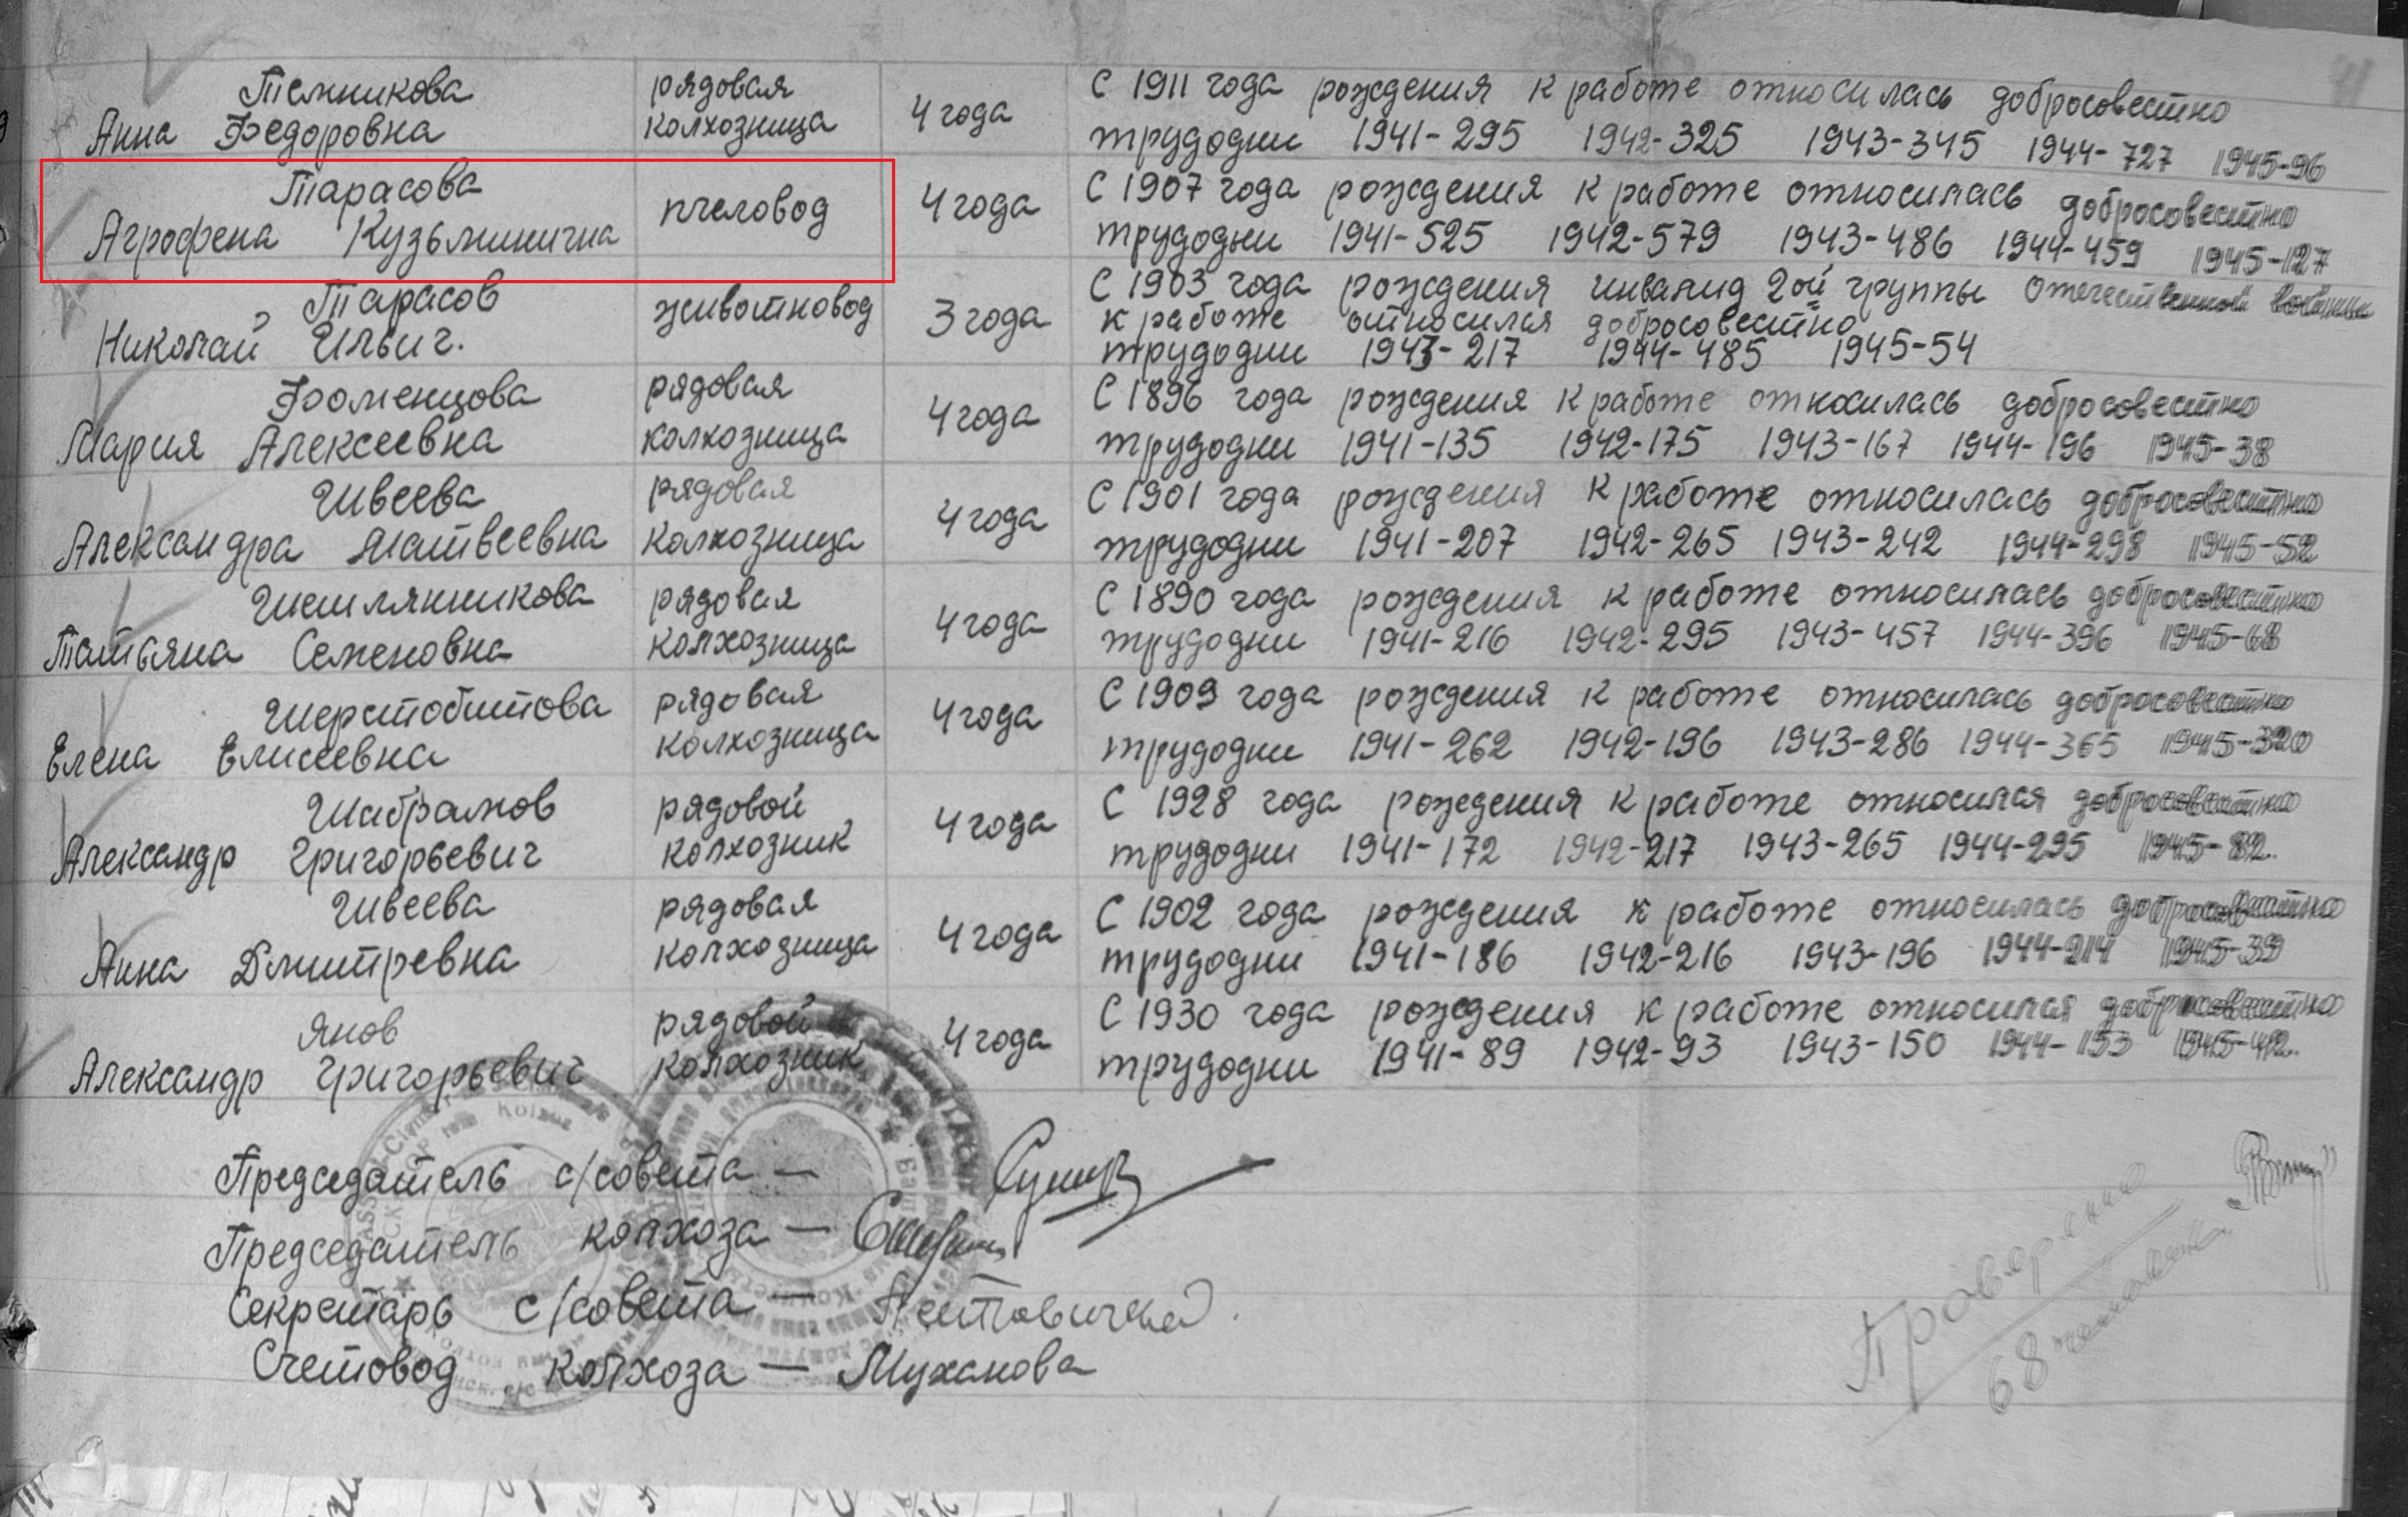 41
Темникова рядовая С 1911 года рождения к работе относилась добросовестно
Анна Федоровна колхозница 4 года трудодни 1941-295 1942-325 1943-345 1944-727 1945-96
Тарасова пчеловод С 1907 года рождения к работе относилась добросовестно
Агрофена Кузьминична 4 года трудодни 1941-525 1942-579 1943-486 1944-459 1945-127
Тарасов животновод С 1903 года рождения инвалид 2ой группы отечественной войны
Николай Ильич. 3 года к работе относился добросовестно
трудодни 1943-217 1944-485 1945-54
Фоменцова рядовая С 1896 года рождения к работе относилась добросовестно
Мария Алексеевна колхозница 4 года трудодни 1941-135 1942-175 1943-167 1944-196 1945-38
Швеева рядовая С 1901 года рождения к работе относилась добросовестно
Александра Матвеевна колхозница 4 года трудодни 1941-207 1942-265 1943-242 1944-298 1945-52
Шишлянникова рядовая С 1890 года рождения к работе относилась добросовестно
Татьяна Семеновна колхозница 4 года трудодни 1941-216 1942-295 1943-457 1944-396 1945-68
Шерстобитова рядовая С 1909 года рождения к работе относилась добросовестно
Елена Елисеевна колхозница 4 года трудодни 1941-262 1942-196 1943-286 1944-365 1945-320
Шабрамов рядовой С 1928 года рождения к работе относился добросовестно
Александр Григорьевич колхозник 4 года трудодни 1941-172 1942-217 1943-265 1944-295 1945-82.
Швеева рядовая С 1902 года рождения к работе относилась добросовестно
Анна Дмитревна колхозница 4 года трудодни 1941-186 1942-216 1943-196 1944-214 1945-39
Янов рядовой С 1930 года рождения к работе относился добросовестно
Александр Григорьевич колхозник 4 года трудодни 1941-89 1942-93 1943-150 1944-153 1945-42.
Председатель с/совета —
Председатель колхоза —
Секретарь с/совета —
Счетовод колхоза — Муханова
Проверено
68 человек